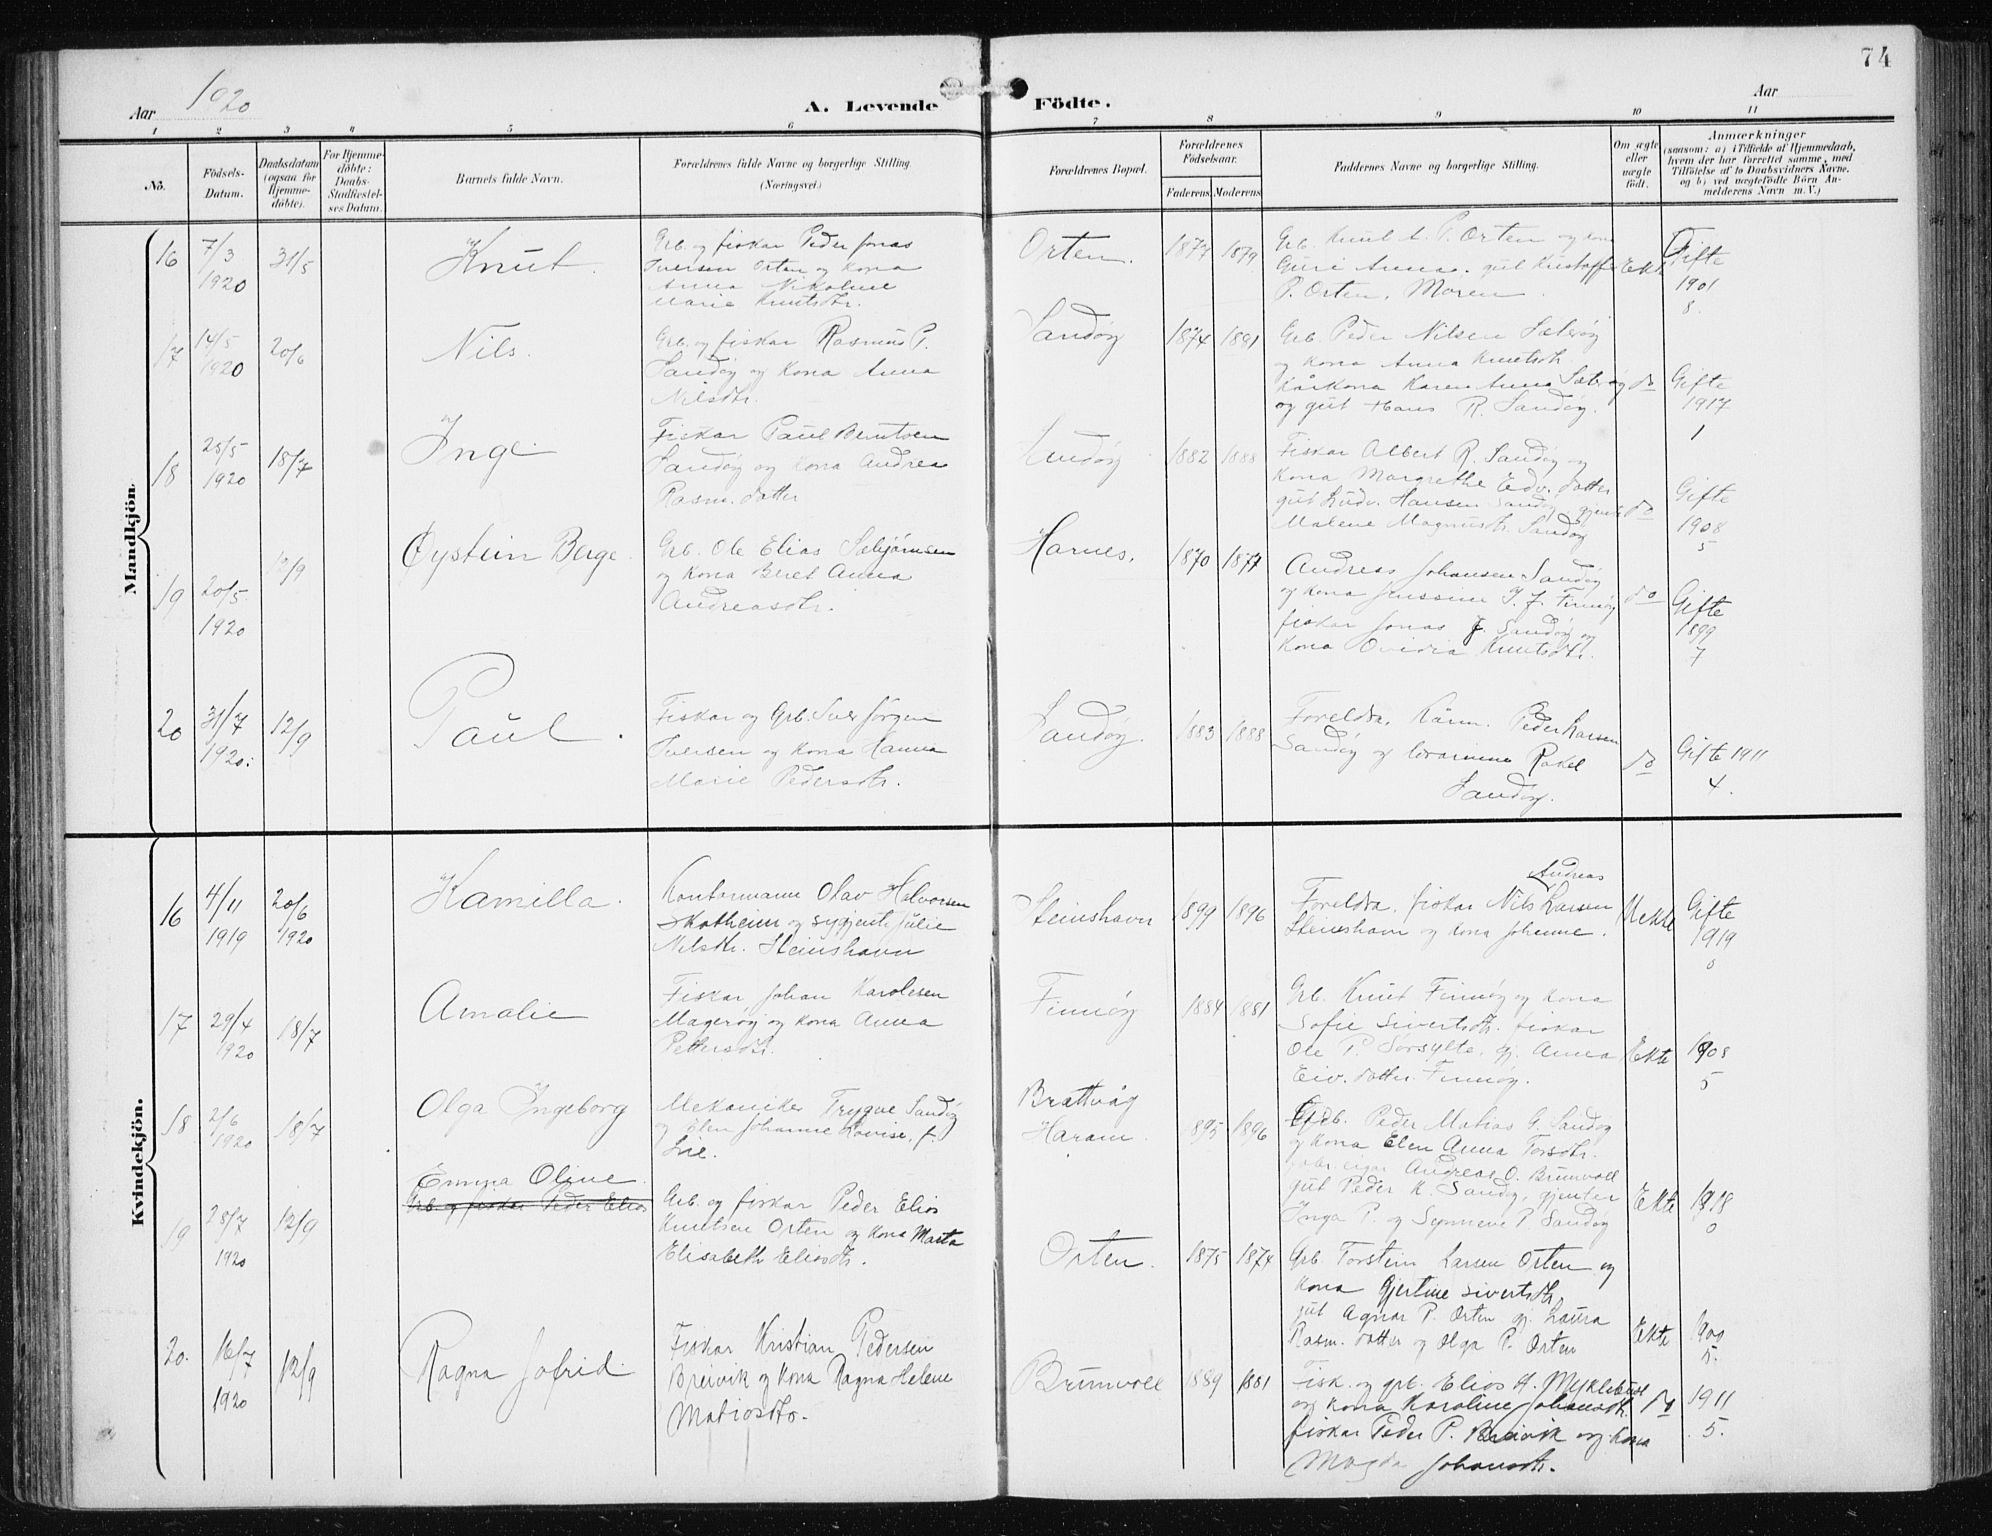 74
Aar 1920
A. Levende Födte.
Aar
1 2 3 4 5 6 7 8 9 10 11
No.
Födsels-Datum.
Daabsdatum (ogsaa for Hjemme-döbte).
For Hjemme-döbte: Daabs-Stadfæstel-ses Datum.
Barnets fulde Navn.
Forældrenes fulde Navne og borgerlige Stilling.
(Næringsvei.)
Forældrenes Bopæl.
Forældrenes Födselsaar.
Faderens Moderens
Faddernes Navne og borgerlige Stilling.
Om ægte eller uægte födt.
Anmærkninger
(saasom: a) i Tilfælde af Hjemmedaab,
hvem der har forrettet samme, med
Tilföielse af to Daabsvidners Navne.
og b) ved uægtefödte Börn An-
melderens Navn m. V.)
Mandkjön.
16 7/3 1920 31/5 Knut.
Grb. og fiskar Peder Jonas
Iversen Orten og kona
Anna Nikoline
Marie Knutsdtr.
Orten. 1877 1879
Grb. Knut A. P. Orten og kona
Guri Anna, gut Kristoffe
P. Orten. Moren.
Ekte
Gifte
1901
8.
17 14/5 1920 20/6 Nils.
Grb. og fiskar Rasmus P.
Sandøy og kona Anna
Nilsdtr.
Sandøy 1874 1891
Grb. Peder Nilsen Sæterøy
og kona Anna Knutsdtr.
Kårkona Karen Anna Sæterøy
og gut Hans R. Sandøy.
do
Gifte
1917
1
18 25/5 1920 18/7 Inge
Fiskar Paul Berntsen
Sandøy og kona Andrea
Rasm. datter
Sandøy 1882 1888
Fiskar Albert R. Sandøy og
kona Margrethe Edv. datter
gut Ludv. Hansen Sandøy, gjente
Malene Magnusdtr. Sandøy
do
Gifte
1908
5
19 20/5 1920 12/9 Øystein Berge.
Grb. Ole Elias Sæbjørnsen
og kona Beret Anna
Andreasdtr.
Harnes. 1870 1877
Andreas Johansen Sandøy
og kona Jensine P. J. Finnøy
fiskar Jonas J. Sandøy og
kona Ovidia Knutsdtr.
do
Gifte
1899
7
20 31/7 1920. 12/9 Paul.
Fiskar og Grb. Iver Jørgen
Iversen og kona Hanna
Marie Pedersdtr.
Sandøy. 1883 1888
Foreldra, Kårm. Peder Larsen
Sandøy og Rakel
Sandøy.
do
Gifte 1911
4.
Kvindekjön.
16 4/11 1919 20/6 1920 Kamilla.
Kontormann Olav Halvorsen
Skotheim og sygjente Julie
Nilsdtr. Steinshavn
Steinshavn 1899 1896
Foreldra, fiskar Nils Andreas Larsen
Steinshavn og kona Johanne.
Uekte
Gifte
1919
0
17 29/4 1920 18/7 Amalie
Fiskar Johan Karolesen
Magerøy og kona Anna
Pettersdtr.
Finnøy 1884 1881
Grb. Knut Finnøy og kona
Sofie Sivertsdtr. fiskar
Ole P. Sorsylte, gj. Anna
Eiv. datter Finnøy.
Ekte
1908
5
18 2/6 1920 18/7 Olga Ingeborg
Mekaniker Trygve Sandøy
og Elen Johanne Lovise, f.
Lie.
Brattvåg
Haram. 1895 1896
Grb. Peder Matias G. Sandøy
og kona Elen Anna Torsdtr.
Andreas O. Brunvoll
gut Peder K. Sandøy, gjenter
Inga P. og Synneve P. Sandøy
Ekte
1918
0
19 28/7 1920 12/9 Emma Oline.
Grb og fiskar Peder Elias
Grb. og fiskar Peder Elias
Knutsen Orten og kona Marta
Elisabeth Eliasdtr.
Orten. 1875 1874
Grb. Torstein Larsen Orten og
kona Gjertine Sivertsdtr.
gut Agnar P. Orten gj. Laura
Rasm. datter og Olga P. Orten
Ekte
1900
5.
20. 16/7 1920 12/9 Ragna Jofrid.
Fiskar Kristian Pedersen
Breivik og kona Ragna Helene
Matiasdtr.
Brunvoll 1889 1881
Fisk. og grb. Elias A. Myklebust
og kona Karoline Johansdtr.
fiskar Peder P. Breivik og kona
Magda Johansdtr.
do
1911
5.